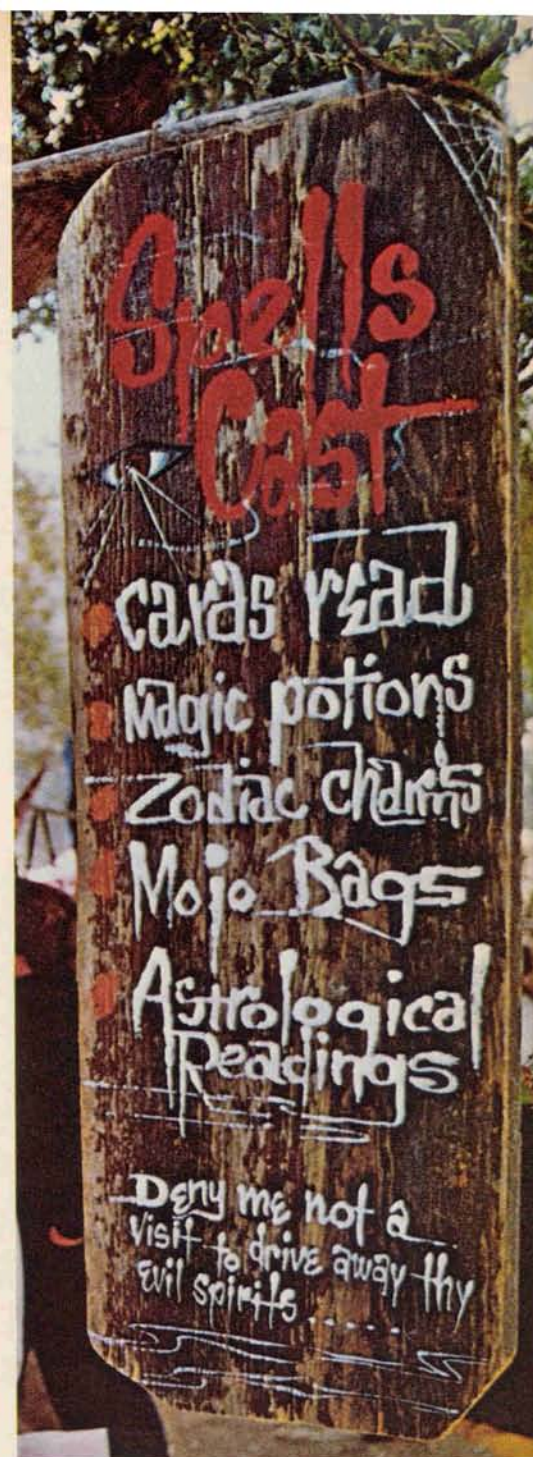 Spells
Cast
Cards read
Magic potions
Zodiac charms
Mojo Bags
Astrological
Readings
Deny me not a
visit to drive away thy
Evil spirits......